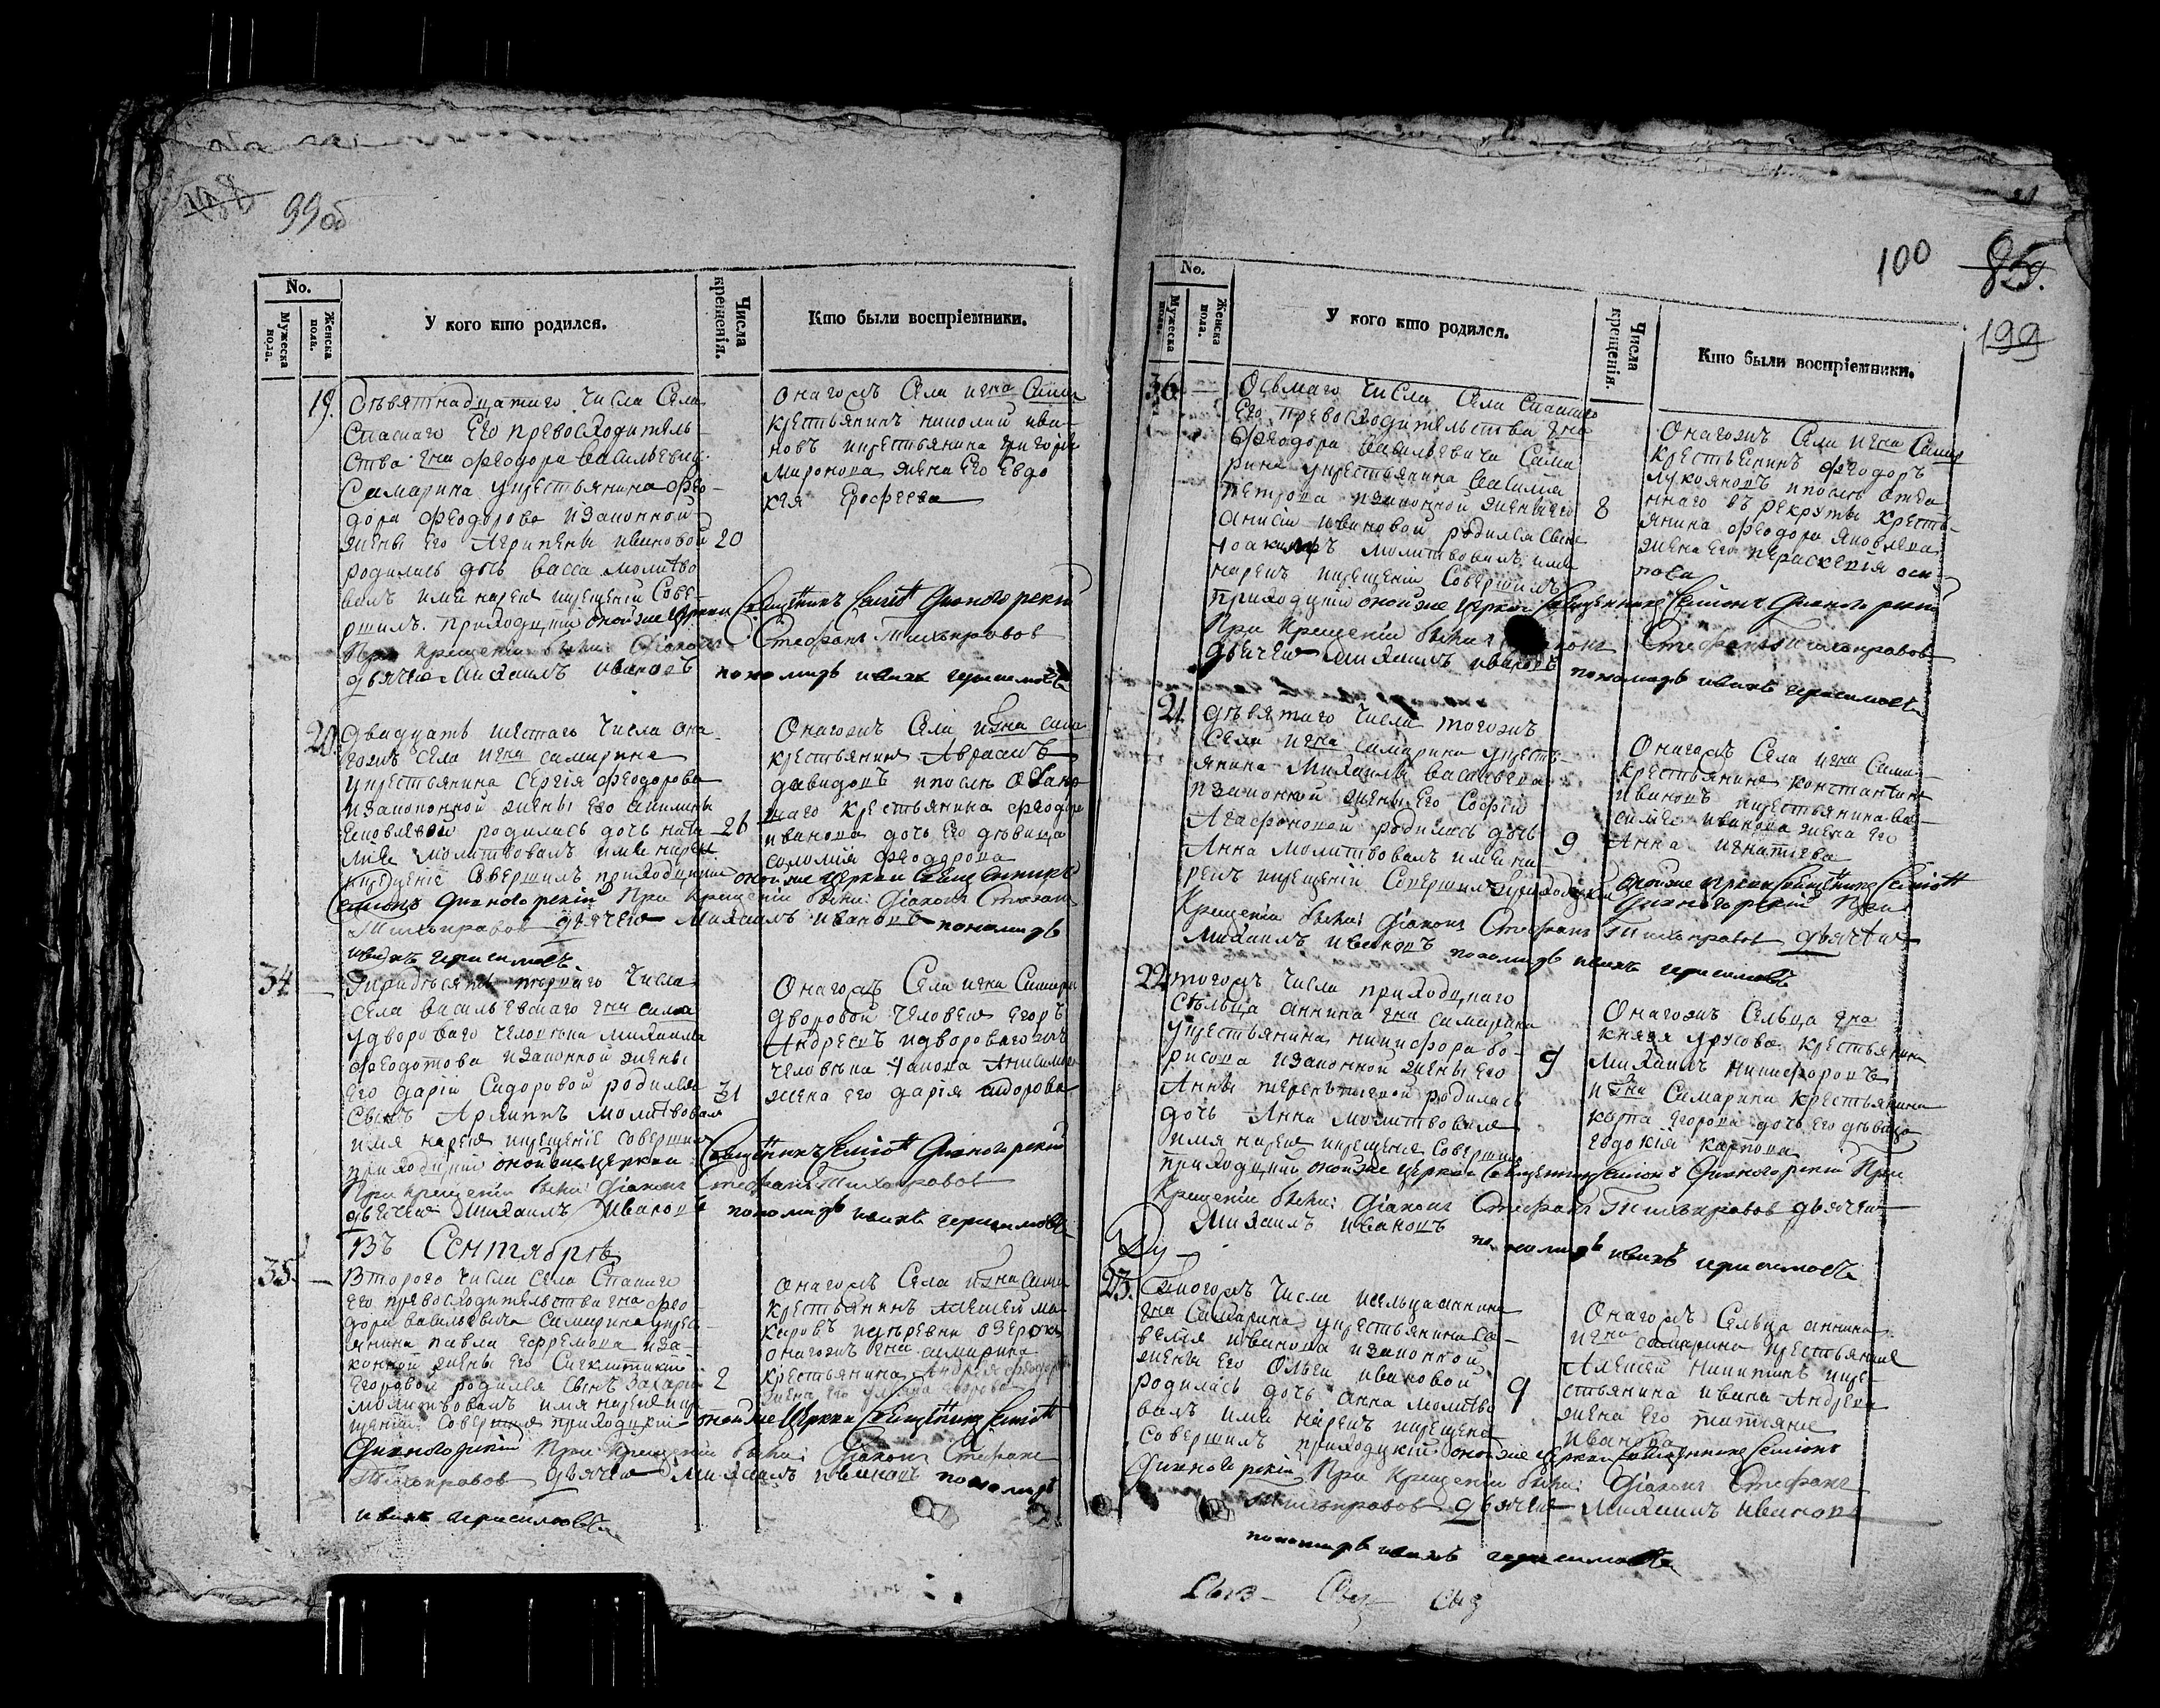 99об
No.
Мужеска пола.
Женска пола.
У кого кто родился.
Числа крещенія.
Кто были воспріемники.
19.
Девятнадцатаго Числа Села
Спаскаго Его превосходитель
Ства Гна Феодора васильевич
Самарина укрестьянина Фео-
дора Феодорова изаконной
жены Его Агрипены ивановой
родилась дочь васса молитво
валъ имя нарекъ икрещеніе Сове-
ршилъ приходцкій онойже Церкви Священникъ Семионъ
При крещеніи были: Діаконъ Стефанъ Тихонравовъ
дьячекъ Михаилъ ивановъ пономарь иванъ герасимовъ
20
Онагожъ Села игна Сама
крестьянинъ николай ива-
новъ икрестьянина григорія
миронова жена Его Евдо
кея Ерофеева
20.
Двадцать шестаго Числа она-
гожъ села игна самарина
укрестьянина Сергія Феодорова
изаконной жены Его
родилась дочь ната
лія молитвовалъ имя нарекъ
икрещеніе Совершилъ приходцкій онойже церкви Священникъ
Семионъ При крещеніи были: Діаконъ Стефанъ
Тихонравовъ дьячекъ Михаилъ ивановъ пономарь
иванъ герасимовъ
26
Онагожъ Села игна сама
крестьянинъ Авраамъ
давидовъ ипослѣ
крестьянина феодора
иванова дочь Его девица
соломія феодорова
34
Тридесять перваго Числа
села васильевскаго гна сама
удвороваго человека михаила
феодотова изаконной жены
Его дарьи Сидоровой родился
Сынъ Архиппъ молитвовалъ
имя нарекъ икрещеніе совершилъ
приходцкій онойже церкви Священникъ Семионъ
При крещеніи были: Діаконъ Стефанъ Тихонравовъ
дьячекъ Михаилъ Ивановъ пономарь иванъ герасимовъ
31
Онагожъ Села игна Самари
дворовой человекъ Егоръ
Андреевъ идвороваго
человека
жена его дарія сидорова
Въ Сентябрѣ
35
Втораго Числа села Спаскаго
Его превосходительства гна Фео-
дора васильевича Самарина укрес-
янина павла Ефремова иза-
конной жены Его
Егоровой родился сынъ Захарій
молитвовалъ имя нарекъ икре
щеніе совершилъ приходцкій онойже Церкви Священникъ Семионъ
При крещеніи были: Діаконъ Стефанъ
Тихонравовъ дьячекъ Михаилъ ивановъ пономарь
иванъ герасимовъ
2
Онагожъ Села игна Сама
крестьянинъ Алексей ма-
каровъ идеревни озерокъ
онагожъ гна самарина
крестьянина Андрея феодоро
жена его
100
85.
199
No.
Мужеска пола.
Женска пола.
У кого кто родился.
Числа крещенія.
Кто были воспріемники.
36
Осьмаго числа Села Спаскаго
Его превосходительства гна
Феодора васильевича Сама
рина укрестьянина василія
петрова изаконной жены его
анисіи ивановой родился Сынъ
Іоакимъ молитвовалъ имя
нарекъ икрещеніе Совершилъ
приходцкій онойже церкви Священникъ Семионъ
При Крещеніи были: Стефанъ Тихонравовъ
дьячекъ Михаилъ ивановъ пономарь иванъ герасимовъ
8
Онагожъ Села игна Самар
крестьянинъ феодоръ
лукояновъ ипослѣ отда
ннаго въ рекруты кресть-
янина феодора яковлева
жена Его параскевія оси-
пова
21.
девятаго Числа тогожъ
Села игна самарина укресть-
янина Михаила васильева
изаконной жены Его Софіи
Агафоновой родилась дочь
Анна молитвовалъ имя на-
рекъ икрещеніе Совершилъ приходцкій онойже церкви Священникъ Семионъ
При
Крещеніи были: Діаконъ Стефанъ Тихонравовъ дьячекъ
Михаилъ ивановъ пономарь иванъ герасимовъ
9
Онагожъ Села игна Сама
крестьянинъ константинъ
ивановъ икрестьянина ва-
силія иванова жена Его
Анна игнатіева
22
тогожъ Числа приходцкаго
Сельца аннина гна самарина
укрестьянина никифора бо-
рисова изаконной жены Его
Анны терентьевой родилась
дочь Анна молитвовалъ
имя нарекъ икрещеніе Совершилъ
приходцкій онойже церкви Священникъ Семионъ При
Крещеніи были: Діаконъ Стефанъ Тихонравовъ дьячекъ
Михаилъ ивановъ
пономарь иванъ герасимовъ
9
Онагожъ Сельца гна
князя урусова крестьянинъ
Михаилъ никифоровъ
игна Самарина крестьянина
карпа Егорова дочь его девица
Евдокія карпова
23.
тогожъ Числа исельца аннина
гна Самарина укрестьянина са-
велія иванова изаконной
жены Его Ольги ивановой
родилась дочь анна молитво
валъ имя нарекъ икрещеніе
совершилъ приходцкій онойже церкви Священникъ Семионъ
При Крещеніи были: Діаконъ Стефанъ
Тихонравовъ дьячекъ Михаилъ ивановъ
пономарь иванъ герасимовъ
9
Онагожъ Сельца аннина
игна самарина крестьянинъ
Алексей никитинъ икре-
стьянина ивана Андреева
жена Его татіана
иванова